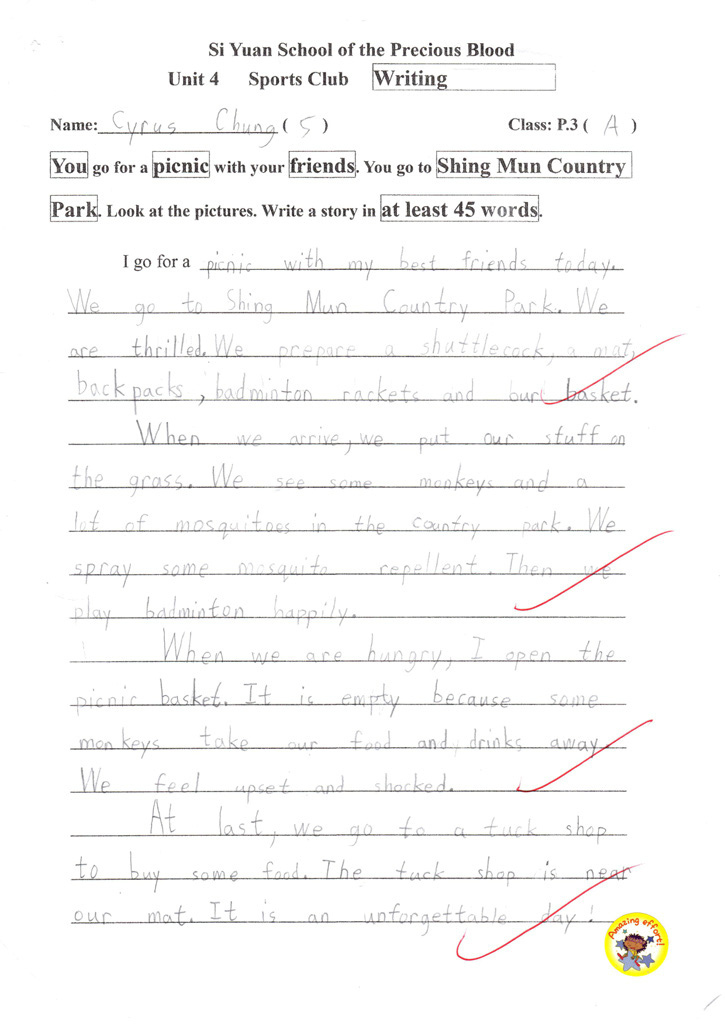 Si Yuan School of the Precious Blood
Unit 4 Sports Club Writing
Name: Cyrus Chung ( 5 ) Class: P.3 ( A )
You go for a picnic with your friends. You go to Shing Mun Country
Park. Look at the pictures. Write a story in at least 45 words.
I go for a picnic with my best friends today.
We go to Shing Mun Country Park. We
are thrilled. We prepare a shuttlecock, a mat,
backpacks, badminton rackets and basket.
When we arrive, we put our stuff on
the grass. We see some monkeys and a
lot of mosquitoes in the country park. We
spray some mosquito repellent. Then we
play badminton happily.
When we are hungry, I open the
picnic basket. It is empty because some
monkeys take our food and drinks away.
We feel upset and shocked.
At last, we go to a tuck shop
to buy some food. The tuck shop is near
our mat. It is an unforgettable day!
Amazing effort!